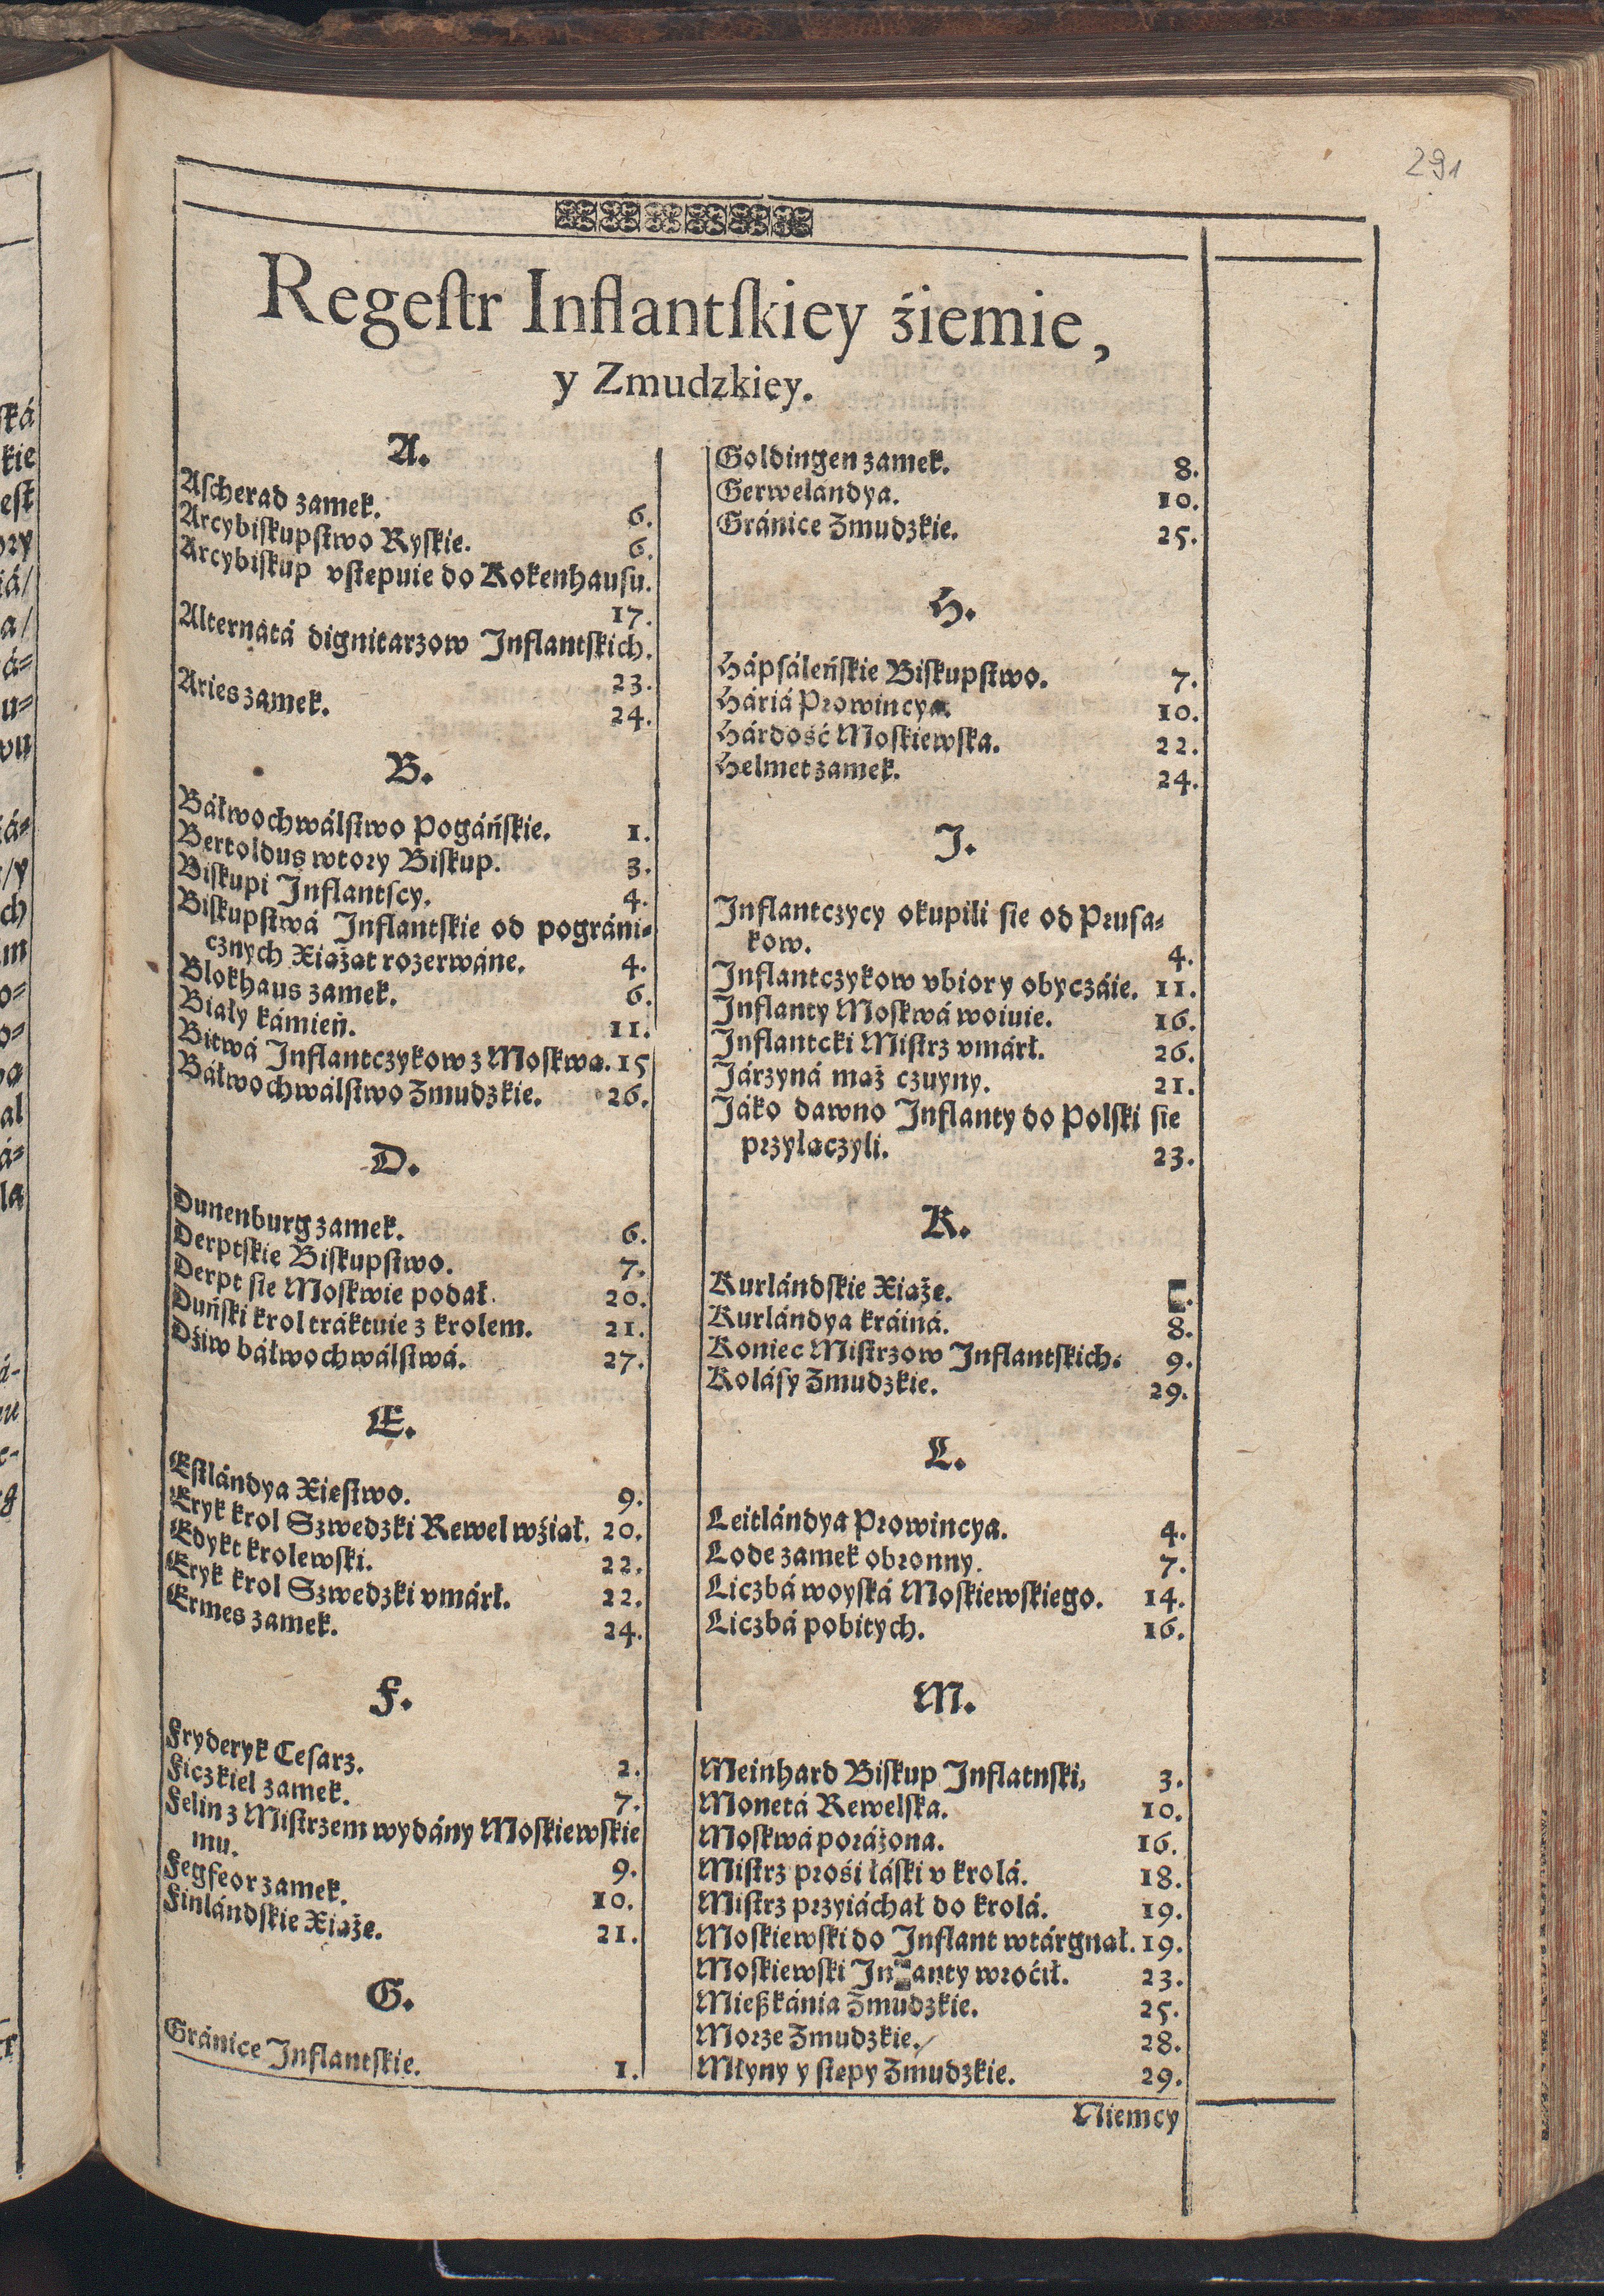 291
Regeſtr Inflantſkiey źiemie,
y Zmudzkiey.
A.
Aſcherad zamek. 6.
Arcybiſkupſtwo Ryſkie. 6.
Arcybiſkup vſtepuie do Kokenhauſu.
17.
Alternatá dignitarzow Inflantſkich.
23.
Aries zamek. 24.
B.
Báłwochwálſtwo Pogáńſkie. 1.
Bertoldus wtory Biſkup. 3.
Biſkupi Inflantſcy. 4.
Biſkupſtwá Inflantſkie od pográni-
cznych Xiążąt rozerwáne. 4.
Blokhaus zamek. 6.
Biały kámień. 11.
Bitwá Inflantczykow z Moſkwą. 15
Báłwochwálſtwo Zmudzkie. 26.
D.
Dunenburg zamek. 6.
Derptſkie Biſkupſtwo. 7.
Derpt ſie Moſkwie podał. 20.
Duńſki krol tráktuie z krolem. 21.
Dźiw báłwochwálſtwá. 27.
E.
Eſtlándya Xieſtwo. 9.
Eryk krol Szwedzki Rewel wźiął. 20.
Edykt krolewſki. 22.
Eryk krol Szwedzki vmárł. 22.
Ermes zamek. 24.
F.
Fryderyk Ceſarz. 2.
Ficzkiel zamek. 7.
Felin z Miſtrzem wydány Moſkiewſkie
mu. 9.
Fegfeor zamek. 10.
Finlándſkie Xiąże. 21.
G.
Gránice Inflantſkie. 1.
Goldingen zamek. 8.
Gerwelandya. 10.
Gránice Zmudzkie. 25.
H.
Hápſáleńſkie Biſkupſtwo. 7.
Háriá Prowincya. 10.
Hárdość Moſkiewſka. 22.
Helmet zamek. 24.
I.
Inflantczycy okupili ſie od Pruſa-
kow. 4.
Inflantczykow vbior y obyczáie. 11.
Inflanty Moſkwá woiuie. 16.
Inflantcki Miſtrz vmárł. 26.
Járzyná mąż czuyny. 21.
Jáko dawno Inflanty do Polſki ſie
przyłączyli. 23.
K.
Kurlándſkie Xiąże.
Kurlándya kráiná. 8.
Koniec Miſtrzow Inflantſkich. 9.
Koláſy Zmudzkie. 29.
L.
Leitlándya Prowincya. 4.
Lode zamek obronny. 7.
Liczbá woyſká Moſkiewſkiego. 14.
Liczbá pobitych. 16.
M.
Meinhard Biſkup Inflatnſki, 3.
Monetá Rewelſka. 10.
Moſkwá poráżona. 16.
Miſtrz prośi łáſki v krolá. 18.
Miſtrz przyiáchał do krolá. 19.
Moſkiewſki do Inflant wtárgnął. 19.
Moſkiewſki In anty wroćił. 23.
Mießkánia Zmudzkie. 25.
Morze Zmudzkie. 28.
Młyny y ſtępy Zmudzkie. 29.
Niemcy